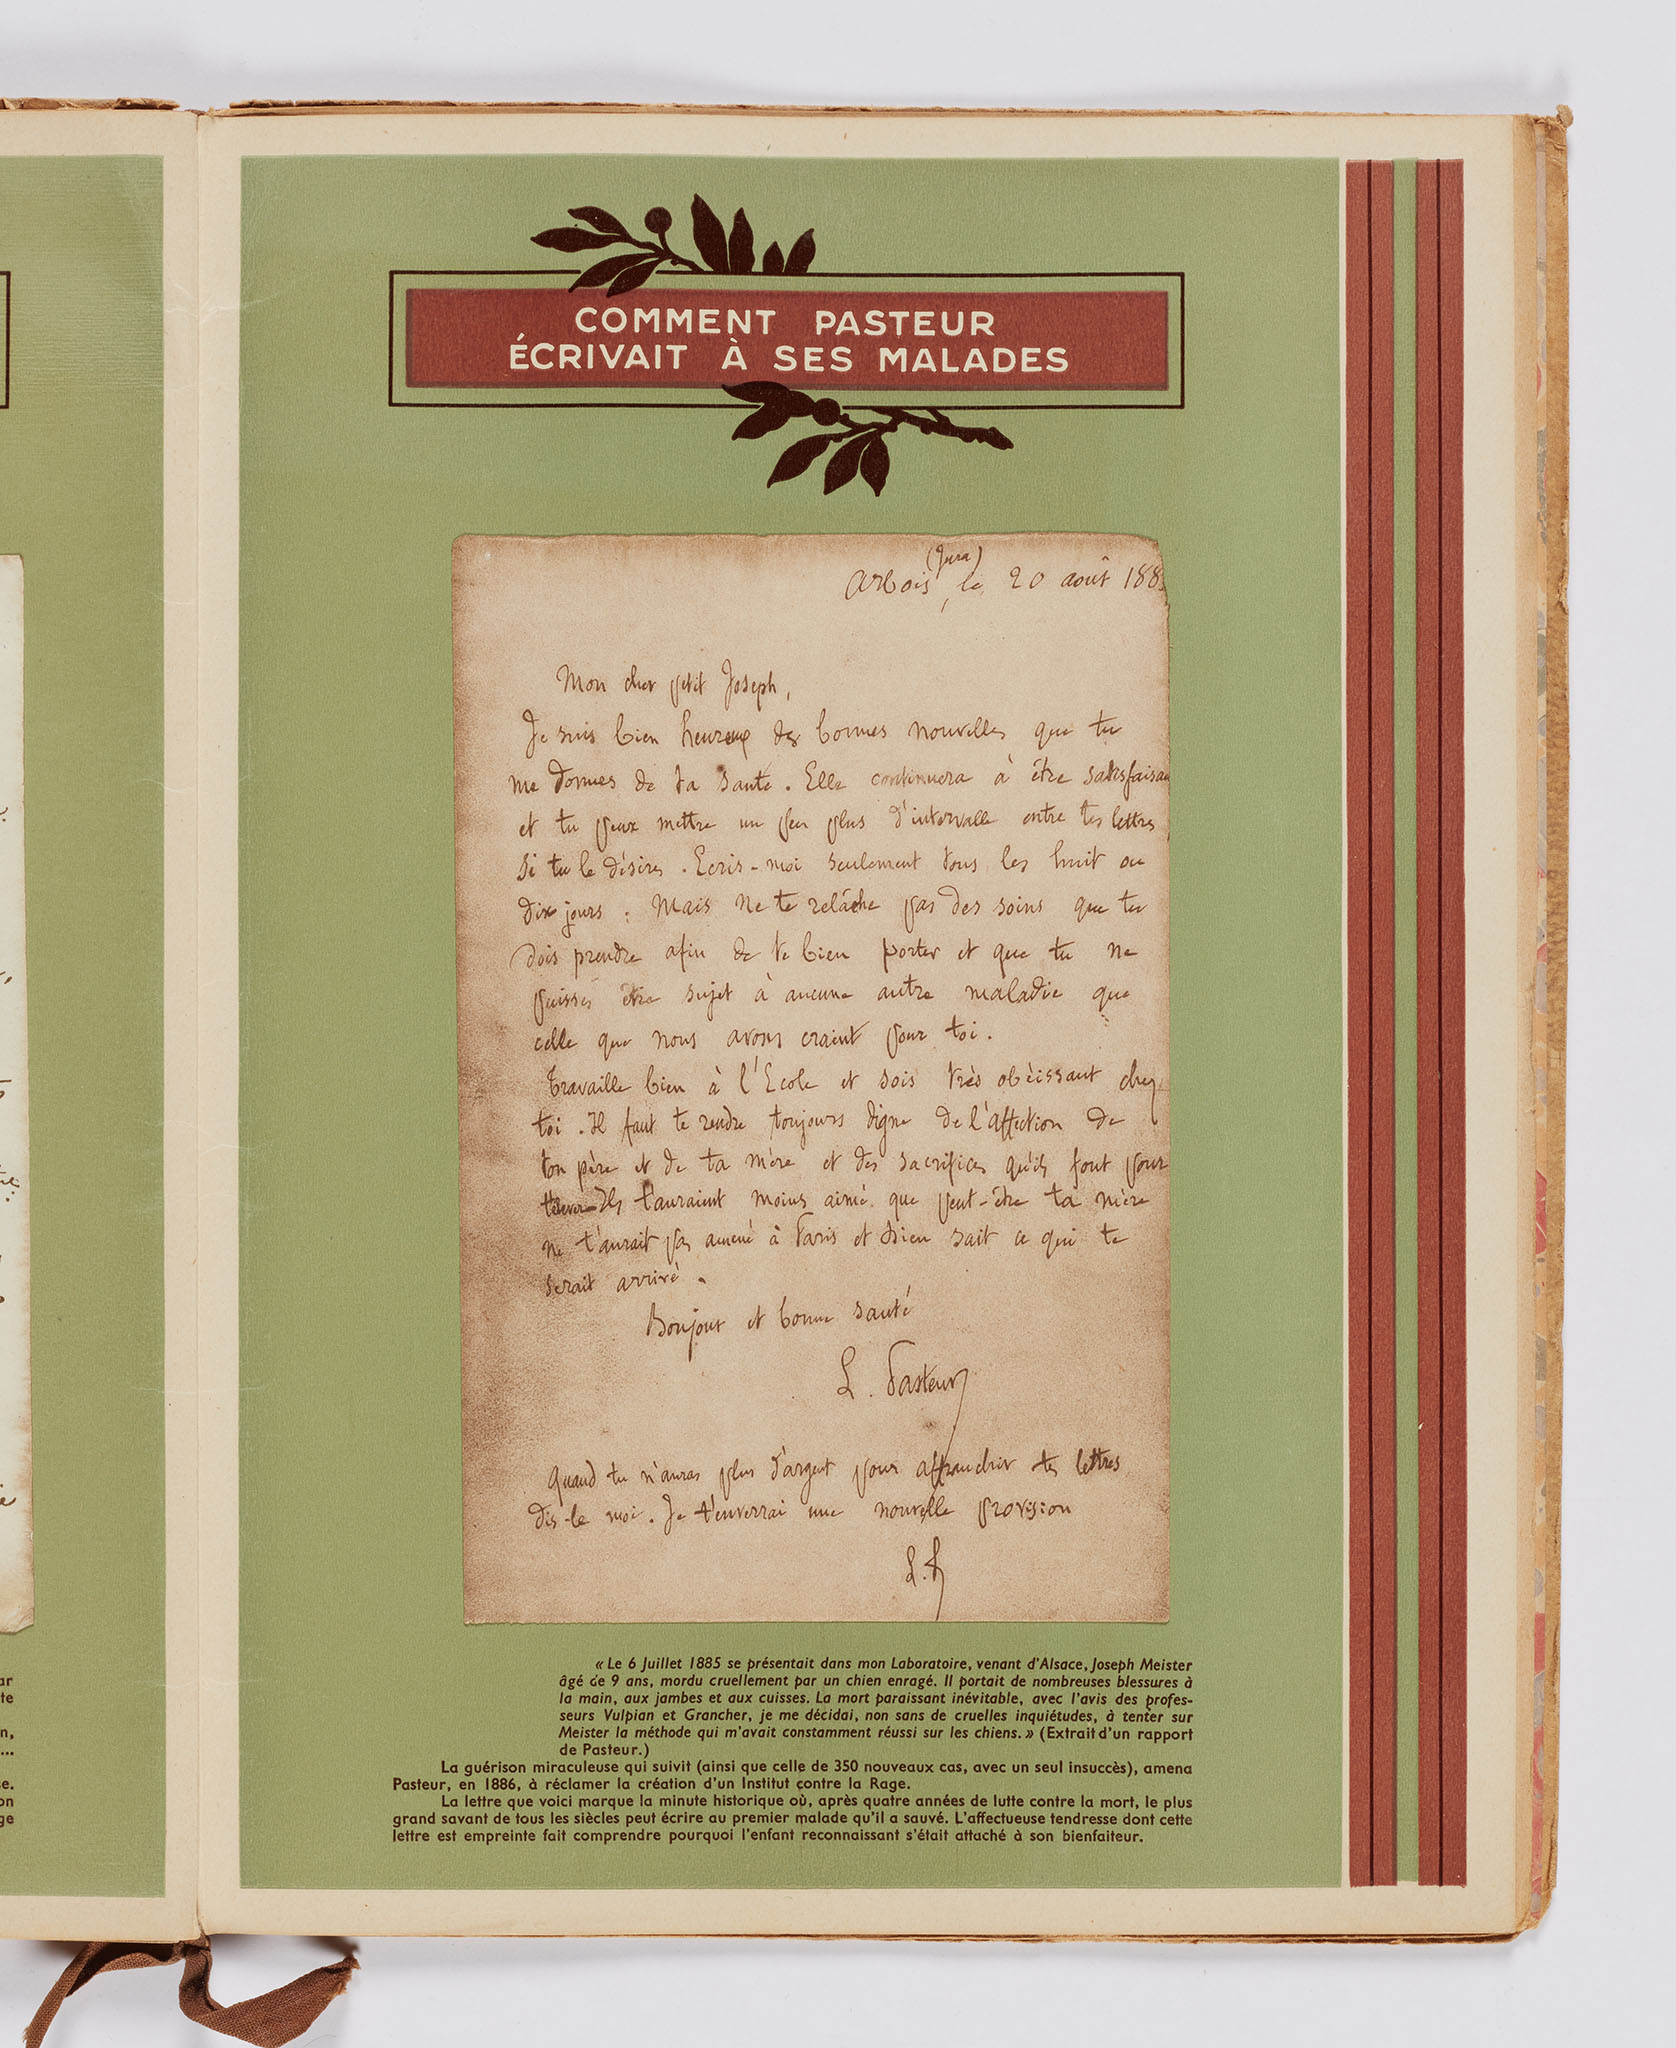 COMMENT PASTEUR
ÉCRIVAIT À SES MALADES
(Jura)
Arbois, le 20 août 188
Mon cher petit Joseph,
Je suis bien heureux des bonnes nouvelles que tu
me donnes de ta santé. Elle continuera à être satisfaisan
et tu peux mettre un peu plus d'intervalle entre tes lettres
si tu le désires. Ecris-moi seulement tous les huit ou
dix jours : Mais ne te relâche pas des soins que tu
dois prendre afin de te bien porter et que tu ne
puisses être sujet à aucune autre maladie que
celle que nous avons craint pour toi.
Travaille bien à l'Ecole et sois très obéissant chez
toi. Il faut te rendre toujours digne de l'affection de
ton père et de ta mère et des sacrifices qu'ils font pour
t'élever. Ils t'auraient moins aimé que peut-être ta mère
ne t'aurait pas amené à Paris et Dieu sait ce qui te
serait arrivé.
Bonjour et bonne santé
L. Pasteur
Quand tu n'auras plus d'argent pour affranchir tes lettres
dis-le moi. Je t'enverrai une nouvelle provision
L. P
« Le 6 Juillet 1885 se présentait dans mon Laboratoire, venant d'Alsace, Joseph Meister
âgé de 9 ans, mordu cruellement par un chien enragé. Il portait de nombreuses blessures à
la main, aux jambes et aux cuisses. La mort paraissant inévitable, avec l'avis des profes-
seurs Vulpian et Grancher, je me décidai, non sans de cruelles inquiétudes, à tenter sur
Meister la méthode qui m'avait constamment réussi sur les chiens. » (Extrait d'un rapport
de Pasteur.)
La guérison miraculeuse qui suivit (ainsi que celle de 350 nouveaux cas, avec un seul insuccès), amena
Pasteur, en 1886, à réclamer la création d'un Institut contre la Rage.
La lettre que voici marque la minute historique où, après quatre années de lutte contre la mort, le plus
grand savant de tous les siècles peut écrire au premier malade qu'il a sauvé. L'affectueuse tendresse dont cette
lettre est empreinte fait comprendre pourquoi l'enfant reconnaissant s'était attaché à son bienfaiteur.